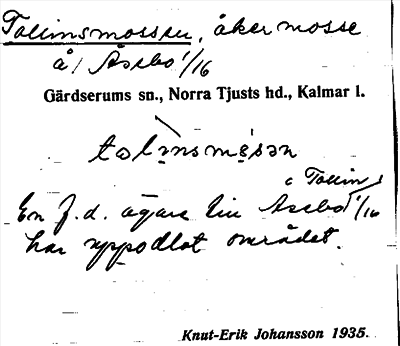 Tollinsmossen, åkermosse
å / Åsebo 1/16
Gärdserums sn., Norra Tjusts hd., Kalmar l.
tolinsmosən
En f. d. ägare till Åsebo 1/16 c Tollin
har uppodlat området.
Knut-Erik Johansson 1935.